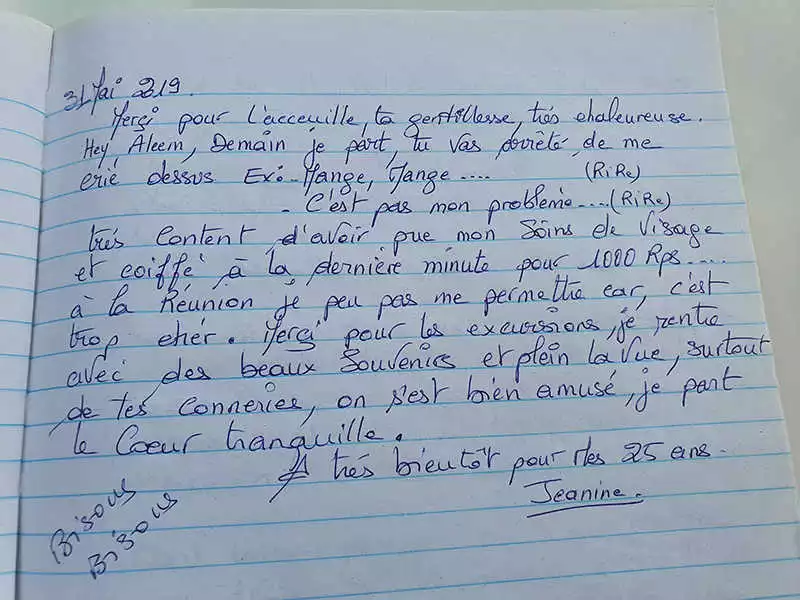 31 Mai 2019.
Merçi pour l'acceuille, ta gentillesse, très chaleureuse.
Hey, Aleem, Demain je part, tu vas arrêté, de me
crié dessus Exo-Mange, Mange.... (RiRe)
- C'est pas mon problème....(RiRe)
très content d'avoir pue mon Soins de Visage
et coiffé à la dernière minute pour 1000 Rps....
à la Réunion je peu pas me permettre car, c'est
trop cher. Merçi pour les excursions, je rentre
avec des beaux Souvenirs et plein la Vue, surtout
de tes Conneries, on s'est bien amusé, je part
le Coeur tranquille.
A très bientôt pour mes 25 ans.
Jeanine.
Bisous
Bisous